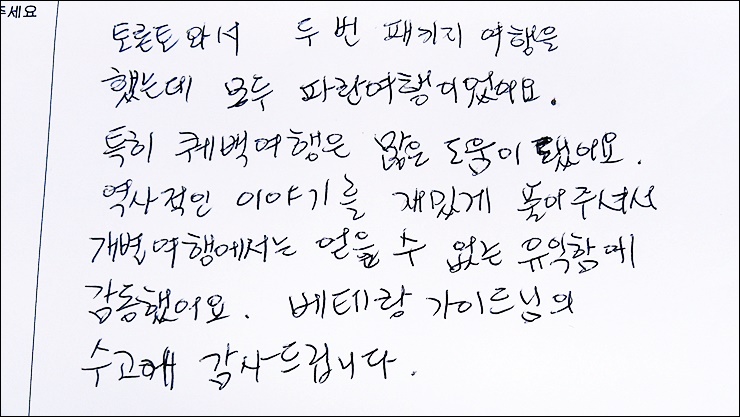 주세요
토론토와서 두 번 패키지 여행을
했는데 모두 파란여행이었어요.
특히 퀘백여행은 많은 도움이 됐어요.
역사적인 이야기를 재밌게 풀어주셔서
개별여행에서는 얻을 수 없는 유익함에
감동했어요. 베테랑 가이드님의
수고에 감사드립니다.